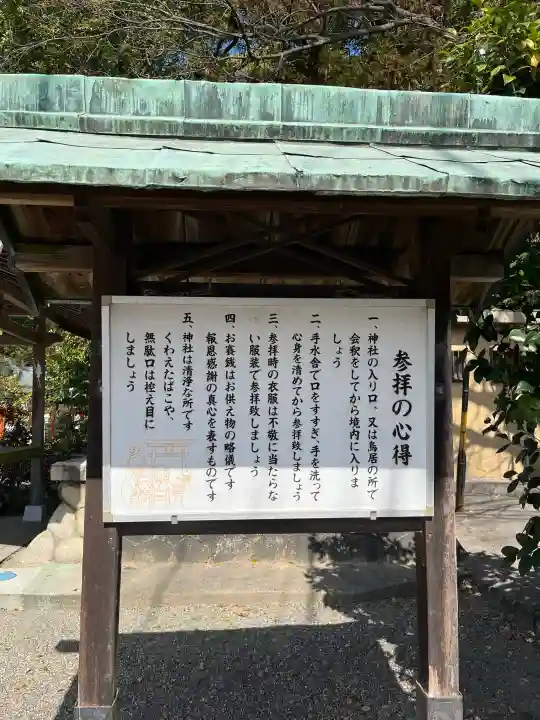 参拝の心得
一、神社の入り口、又は鳥居の所で
会釈をしてから境内に入りま
しょう
二、手水舎で口をすすぎ、手を洗って
心身を清めてから参拝致しましょう
三、参拝時の衣服は不敬に当たらな
い服装で参拝致しましょう
四、お賽銭はお供え物の略儀です
報恩感謝の真心を表すものです
五、神社は清浄な所です
くわえたばこや、
無駄口は控え目に
しましょう